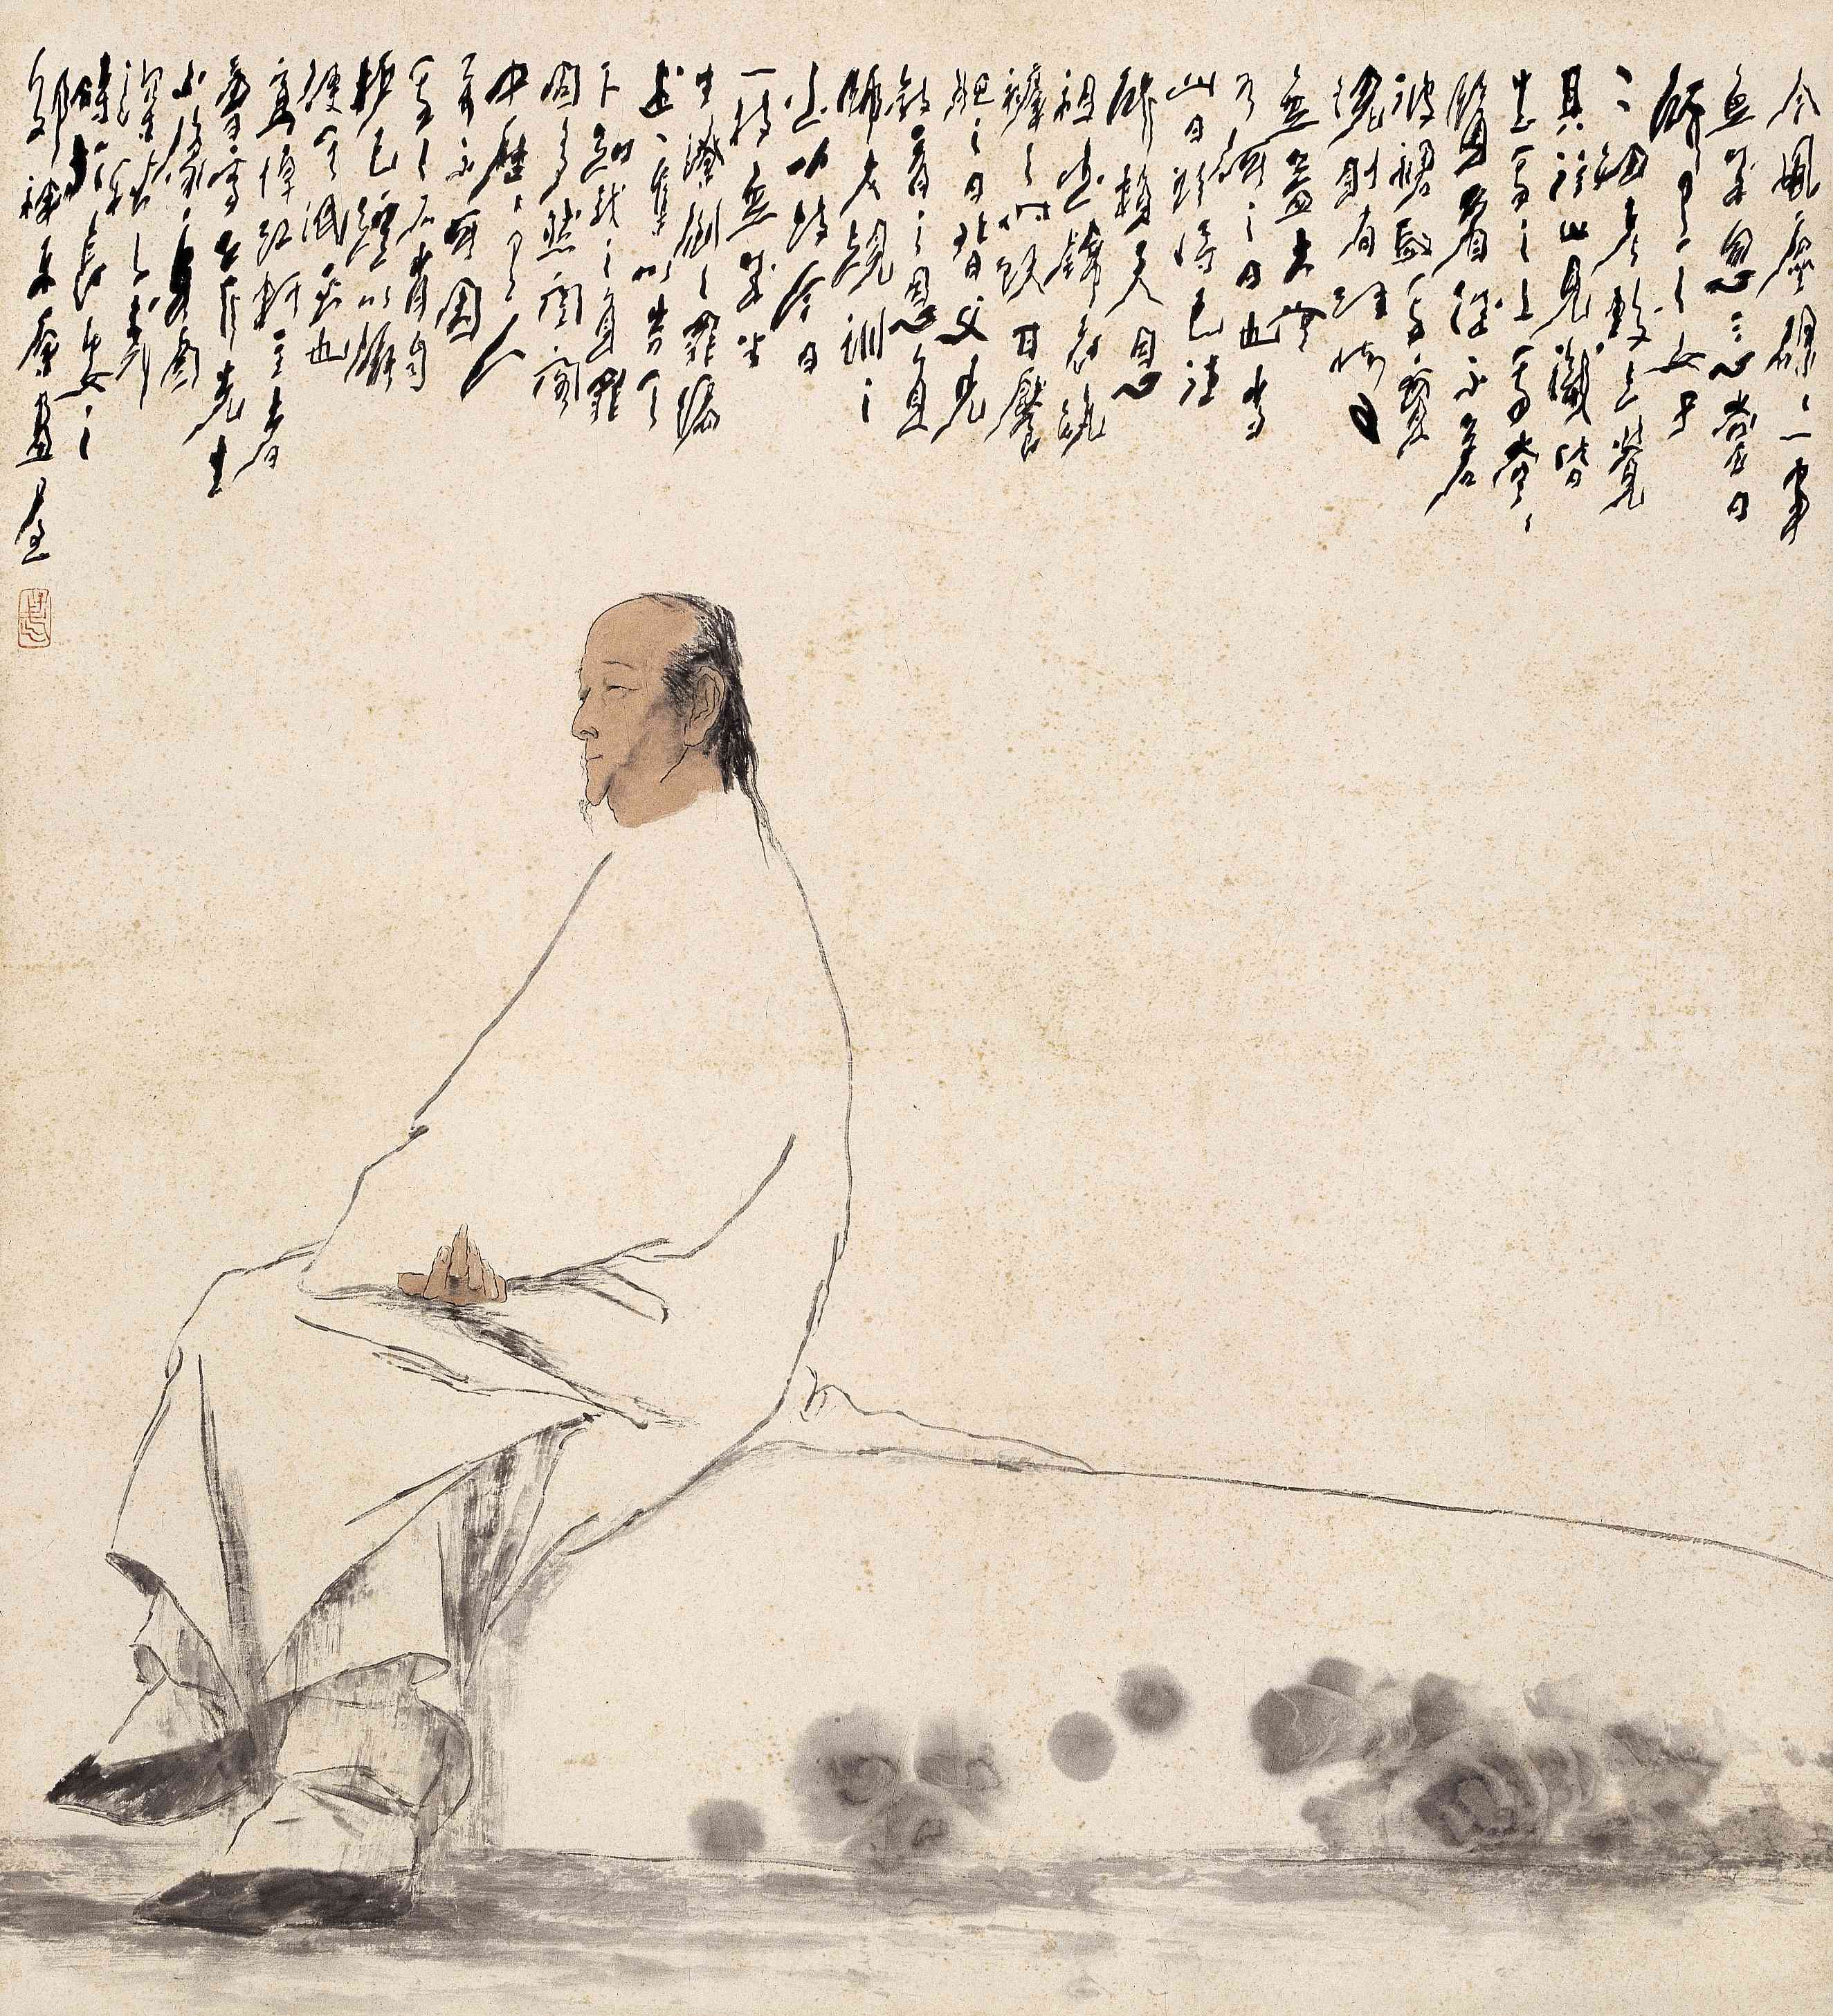 今風塵碌碌一事
無成忽念當日
所有之女子
一一細考較去覺
其行止見識皆
出我之上我堂堂
鬚眉誠不若
彼裙釵我實
愧則有餘悔又
無益大無
可如何之日也當
此日欲將已往
所賴天恩
祖德錦衣紈
褲之時飫甘饜
肥之日背父兄
教育之恩負
師友規訓之
德以致今日
一技無成半
生潦倒之罪編
述一集以告天
下知我之負罪
固多然閨閣
中歷歷有人
萬不可因
我之不肖自
護已短以併
使其泯滅也
寫悼紅軒主者
曹雪芹先生
小像
深秋之
時於長安之